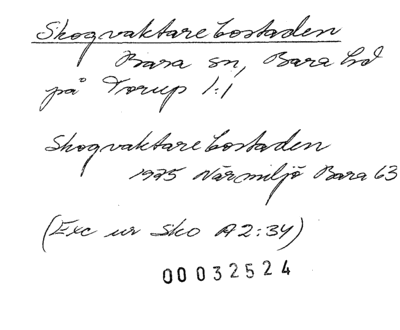 Skogvaktarebostaden
Bara sn, Bara hd
på Torup 1:1
Skogvaktarebostaden
1975 Närmiljö Bara 63
(Exc ur Sko A2:34)
00032524